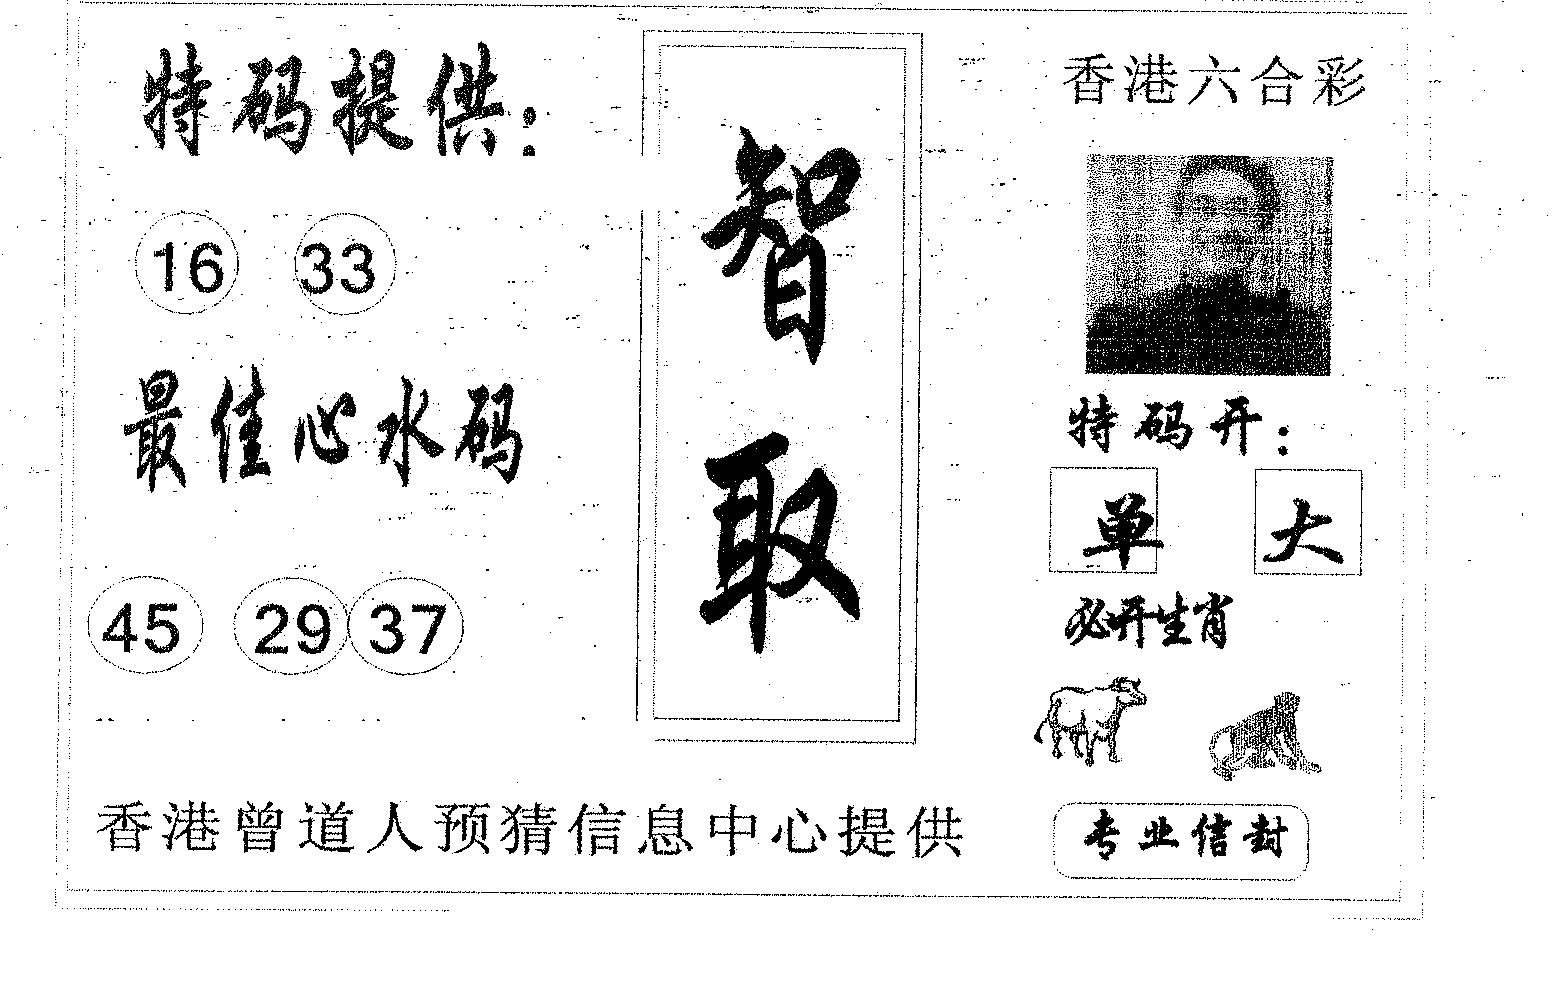 特码提供：
16 33
最佳心水码
45 29 37
智取
香港六合彩
特码开：
单 大
必开生肖
专业信封
香港曾道人预猜信息中心提供